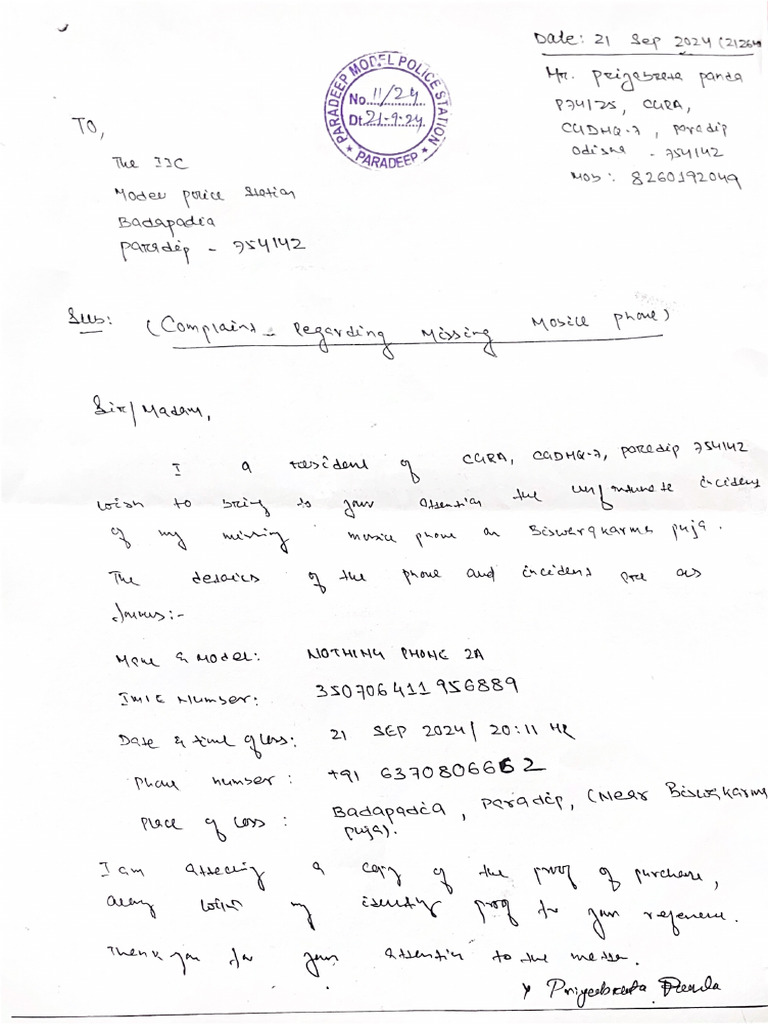 Date: 21 Sep 2024 (21264
Mr. Priyabrata panda
P74125, CGRA,
CGDHQ-7, paradip
Odisha - 754142
Mob: 8260192049
PARADEEP MODEL POLICE STATION
No. 11/24
Dt. 21-9-24
PARADEEP
TO,
The IIC
Model police station
Badapadia
paradip - 754142
Sub: (Complaint Regarding Missing Mobile phone)
Sir/Madam,
I a resident of CGRA, CGDHQ-7, paradip 754142
wish to bring to your attention the unfortunate incident
of my missing mobile phone on Biswarkarma puja.
The details of the phone and incident are as
follows:-
Make & Model: NOTHING PHONE 2A
IMIE Number: 350706411956889
Date & time of loss: 21 SEP 2024/ 20:11 HR
phone number: +91 6370806662
Place of loss: Badapadia, paradip, (Near Biswakarma
puja).
I am attaching a copy of the proof of purchase,
along with my identity proof for your reference.
Thank you for your attention to the matter.
Priyabrata Panda